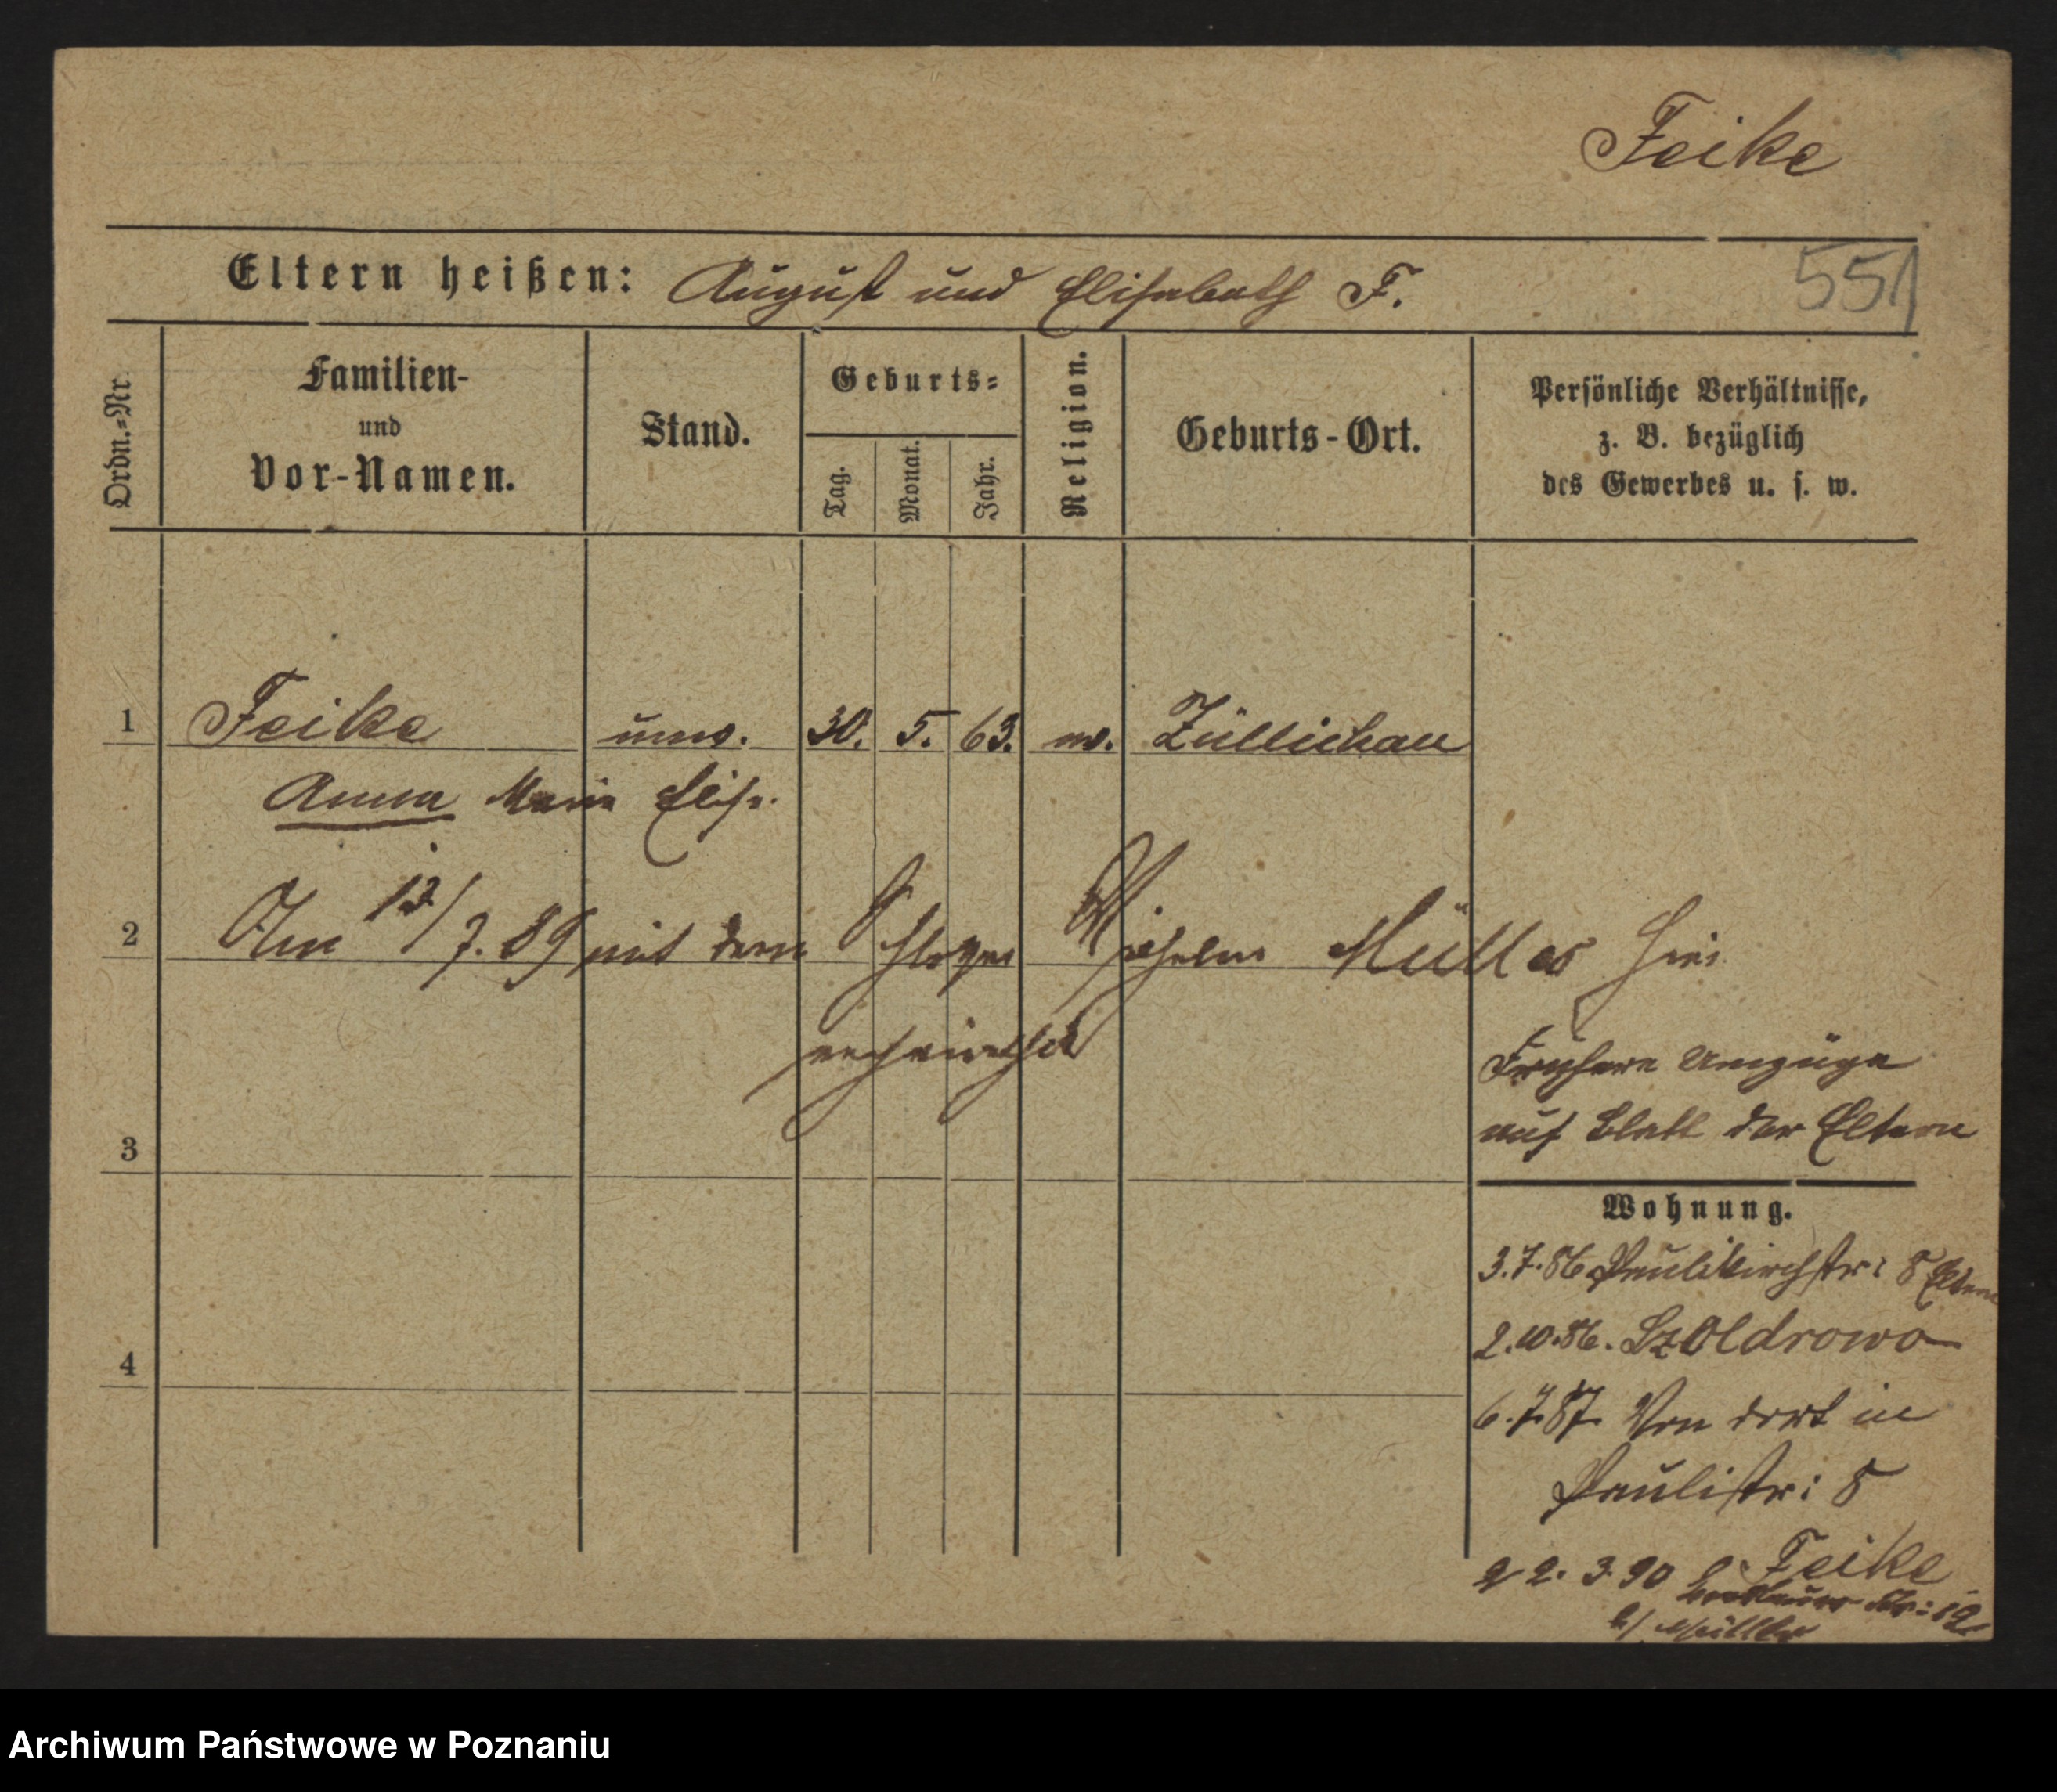 Feike
Eltern heißen: August und Elisabeth F.
551
Ordn.=Nr.
Familien-
und
Vor-Namen.
Stand.
Geburts=
Tag.
Monat.
Jahr.
Religion.
Geburts-Ort.
Persönliche Verhältnisse,
z. B. bezüglich
des Gewerbes u. s. w.
1 Feike unv. 30. 5. 63. ev. Züllichau
Anna Marie Elise.
2 Am 12/7. 89 mit dem Wilhelm Müller hier
verheirathet
Frühere Umzüge
auf Blatt der Eltern
3
Wohnung.
3.7.86 Paulikirchstr: 8 Eltern
2.10.86. Szoldrowo
4
6.7.87. Von dort in
Paulistr: 8
22. 3 90 Feike
Breslauer Str: 19
b/ Müller
Archiwum Państwowe w Poznaniu